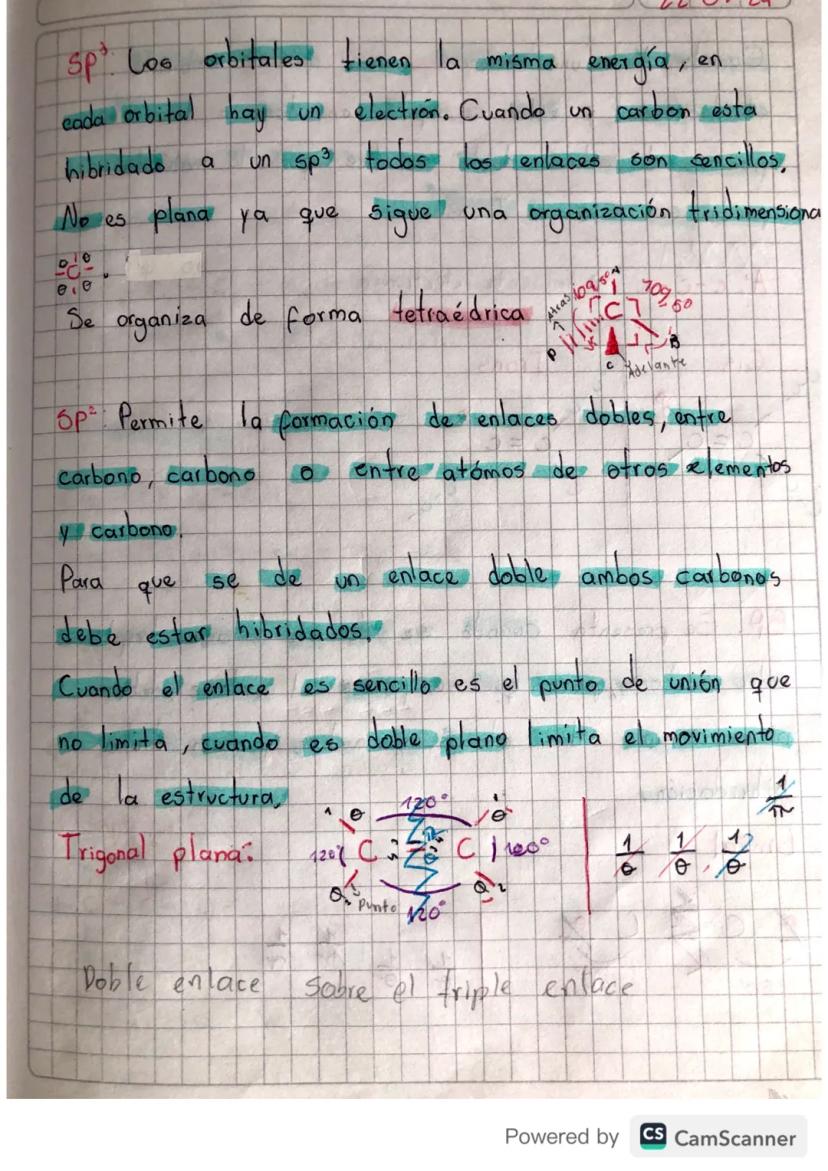 Sp³: Los orbitales tienen la misma energía, en
cada orbital hay un electrón. Cuando un carbon esta
hibridado a un sp³ todos los enlaces son sencillos.
No es plana ya que sigue una organización tridimensiona
C
Se organiza de forma tetraédrica
Atras 109,50 A 109,50
C
D B
C Adelante
Sp²: Permite la formación de enlaces dobles, entre
carbono, carbono o entre atómos de otros elementos
y carbono.
Para que se de un enlace doble ambos carbonos
debe estar hibridados.
Cuando el enlace es sencillo es el punto de unión que
no limita, cuando es doble plano limita el movimiento
de la estructura.
Trigonal plana:
120°
120 C π C 120°
θ
Punto 120°
1 1 1 1
θ θ θ π
Doble enlace sobre el triple enlace
Powered by CS CamScanner